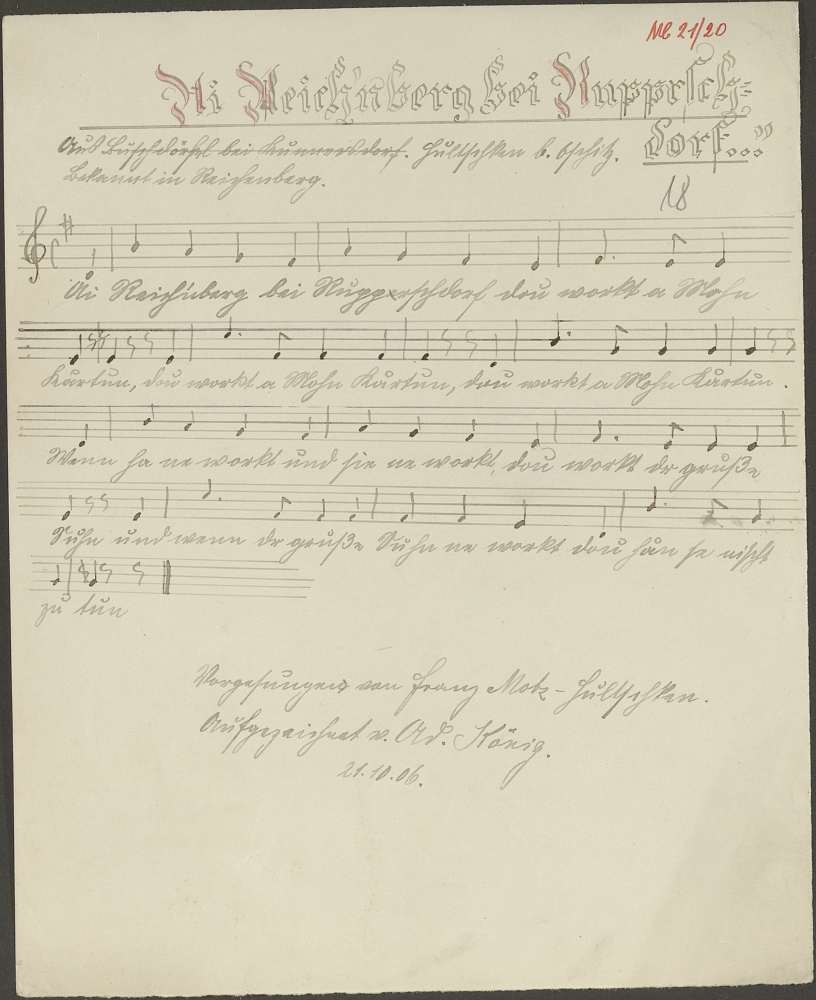 Mc 21/20
Ai Reich'nberg bei Rupprsch=
dorf..."
Aus Buschdörfel bei Kunnersdorf. Hultschken b. Oschitz.
Bekannt in Reichenberg.
18
Ai Reich'nberg bei Rupperschdorf dou workt a Mohn
Kårtun, dou workt a Mohn Kårtun, dou workt a Mohn Kårtun.
Wenn ha ne workt und sie ne workt, dou workt dr gruße
Suhn und wenn dr gruße Suhn ne workt dou hån se nischt
zu tun
Vorgesungen von Franz Motz - Hultschken.
Aufgezeichnet v. Ad. König.
21.10.06.